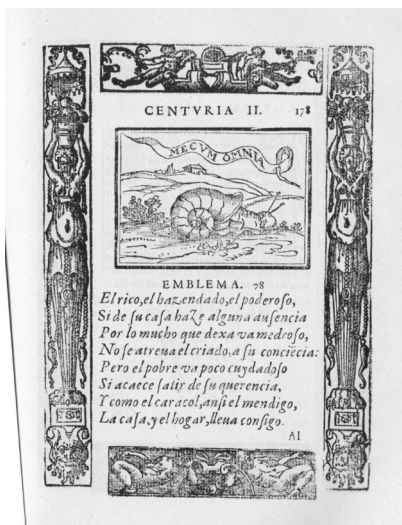 CENTVRIA II. 178
MECVM OMNIA
EMBLEMA. 78
El rico, el hazendado, el poderoſo,
Si de ſu caſa haZe alguna auſencia
Por lo mucho que dexa va medroſo,
No ſe atreua el criado, a ſu conciẽcia:
Pero el pobre va poco cuydadoſo
Si acaece ſalir de ſu querencia,
Y como el caracol, anſi el mendigo,
La caſa, y el hogar, lleua conſigo.
Al